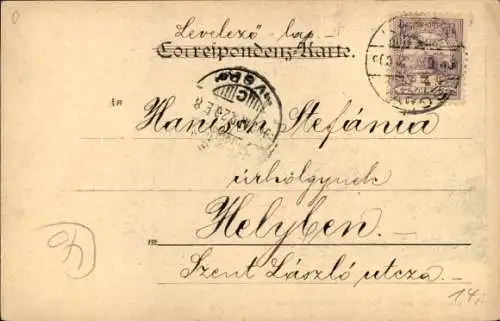 Levelező-lap.
Correspondenz-Karte.
in
Stefánia
úrhölgynek
in
Helyben.
Szent László utcza.
14,-